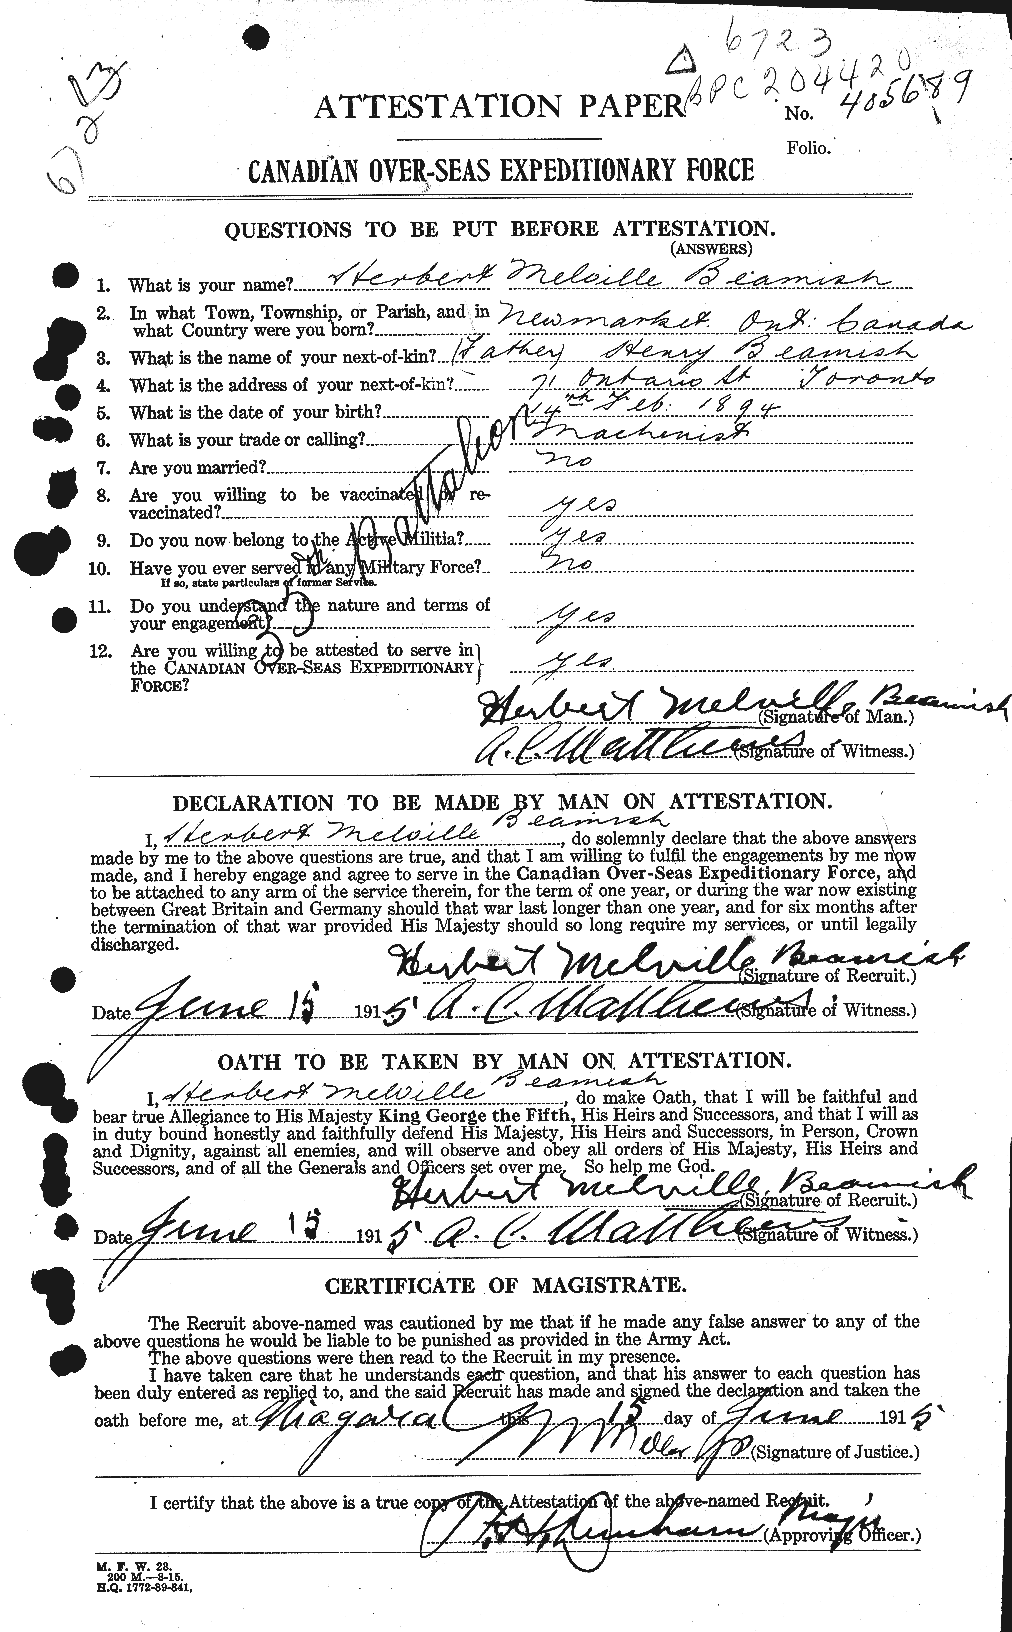 6723
BPC 204420
67213
ATTESTATION PAPER
No. 405689
Folio.
CANADIAN OVER-SEAS EXPEDITIONARY FORCE
QUESTIONS TO BE PUT BEFORE ATTESTATION.
(ANSWERS)
1. What is your name? Herbert Melville Beamish
2. In what Town, Township, or Parish, and in
what Country were you born? Newmarket Ont. Canada
3. What is the name of your next-of-kin? (Father) Henry Beamish
4. What is the address of your next-of-kin? 71 Ontario St Toronto
5. What is the date of your birth? 14th Feb. 1894
6. What is your trade or calling? Machenist
7. Are you married? no
8. Are you willing to be vaccinated or re-
vaccinated? yes
9. Do you now belong to the Active Militia? yes
10. Have you ever served in any Military Force? no
If so, state particulars of former Service.
11. Do you understand the nature and terms of
your engagement? yes
12. Are you willing to be attested to serve in
the CANADIAN OVER-SEAS EXPEDITIONARY
FORCE? yes
35th Battalion
Herbert Melville Beamish (Signature of Man.)
A. C. Matthews (Signature of Witness.)
DECLARATION TO BE MADE BY MAN ON ATTESTATION.
I, Herbert Melville Beamish, do solemnly declare that the above answers
made by me to the above questions are true, and that I am willing to fulfil the engagements by me now
made, and I hereby engage and agree to serve in the Canadian Over-Seas Expeditionary Force, and
to be attached to any arm of the service therein, for the term of one year, or during the war now existing
between Great Britain and Germany should that war last longer than one year, and for six months after
the termination of that war provided His Majesty should so long require my services, or until legally
discharged.
Herbert Melville Beamish (Signature of Recruit.)
Date June 15 1915 A. C. Matthews (Signature of Witness.)
OATH TO BE TAKEN BY MAN ON ATTESTATION.
I, Herbert Melville Beamish, do make Oath, that I will be faithful and
bear true Allegiance to His Majesty King George the Fifth, His Heirs and Successors, and that I will as
in duty bound honestly and faithfully defend His Majesty, His Heirs and Successors, in Person, Crown
and Dignity, against all enemies, and will observe and obey all orders of His Majesty, His Heirs and
Successors, and of all the Generals and Officers set over me. So help me God.
Herbert Melville Beamish (Signature of Recruit.)
Date June 15 1915 A. C. Matthews (Signature of Witness.)
CERTIFICATE OF MAGISTRATE.
The Recruit above-named was cautioned by me that if he made any false answer to any of the
above questions he would be liable to be punished as provided in the Army Act.
The above questions were then read to the Recruit in my presence.
I have taken care that he understands each question, and that his answer to each question has
been duly entered as replied to, and the said Recruit has made and signed the declaration and taken the
oath before me, at Niagara this 15 day of June 1915
(Signature of Justice.)
I certify that the above is a true copy of the Attestation of the above-named Recruit.
Major
(Approving Officer.)
M. F. W. 23.
200 M.—3-15.
H.Q. 1772-39-841.